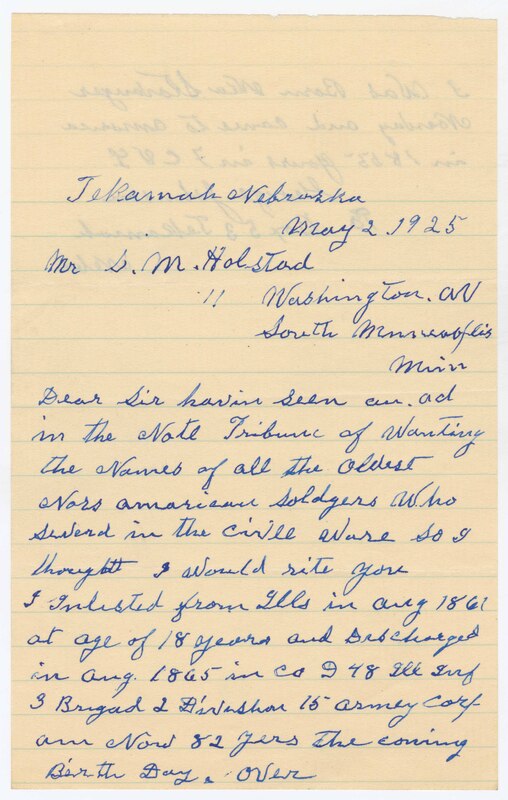 Tekamah Nebraska
May 2 1925
Mr S. M. Holstad
11 Washington. AV
South Minneaoplis
Minn
Dear Sir havin seen an. ad
in the Note Tribune of Wanting
the Names of all the Oldest
Nors amarican Soldgers Who
Severd in the Civill Ware So I
thought I would rite you
I Inlisted from Ills in aug 1861
at age of 18 years and Discharged
in aug. 1865 in Co D 48 Ill Inf
3 Brigad 2 Divishon 15 armey Corp
am Now 82 yers the coming
Birth Day. Over